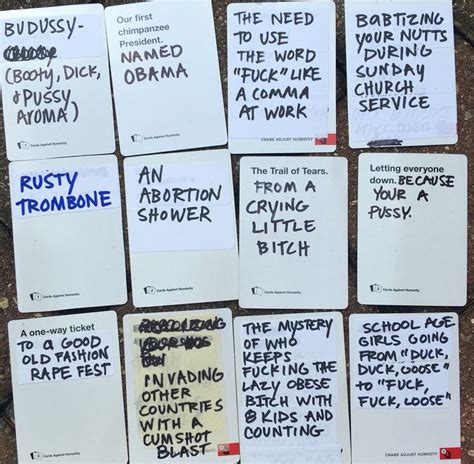 BUDUSSY-
(BOOTY, DICK,
& PUSSY
AROMA)
Cards Against Humanity
Our first
chimpanzee
President.
NAMED
OBAMA
Cards Against Humanity
THE NEED
TO USE
THE WORD
"FUCK" LIKE
A COMMA
AT WORK
CRABS ADJUST HUMIDITY
BABTIZING
YOUR NUTTS
DURING
SUNDAY
CHURCH
SERVICE
RUSTY
TROMBONE
Cards Against Humanity
AN
ABORTION
SHOWER
Cards Against Humanity
The Trail of Tears.
FROM A
CRYING
LITTLE
BITCH
Cards Against Humanity
Letting everyone
down. BECAUSE
YOUR A
PUSSY.
Cards Against Humanity
A one-way ticket
TO A GOOD
OLD FASHION
RAPE FEST
Cards Against Humanity
INVADING
OTHER
COUNTRIES
WITH A
CUMSHOT
BLAST
THE MYSTERY
OF WHO
KEEPS
FUCKING THE
LAZY OBESE
BITCH WITH
8 KIDS AND
COUNTING
SCHOOL AGE
GIRLS GOING
FROM "DUCK,
DUCK, GOOSE"
TO "FUCK,
FUCK, LOOSE"
CRABS ADJUST HUMIDITY